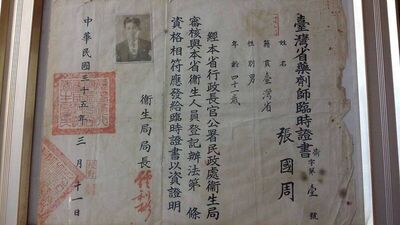 臺灣省藥劑師臨時證書
衛字第壹號
姓名 張國周
籍貫臺灣省
性別男
年齡四十一歲
經本省行政長官公署民政處衛生局
審核與本省衛生人員登記辦法第 條
資格相符應發給臨時證書以資證明
衛生局局長
中華民國三十五年三月十一日